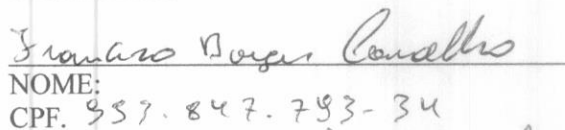 Francisco Borges Carvalho
NOME:
CPF. 953.847.793-34